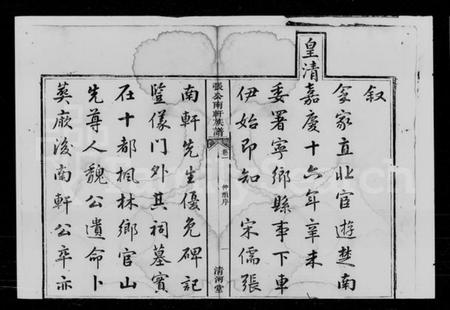 叙
余家直北宦遊楚南
皇清
嘉慶十六年辛未
委署寧鄉縣事下車
伊始即知 宋儒張
張公南軒族譜
卷
仲順序
一
清河堂
南軒先生優免碑記
暨儀門外其祠墓實
在十都楓林鄉官山
先尊人魏公遺命卜
葬厥後南軒公卒亦